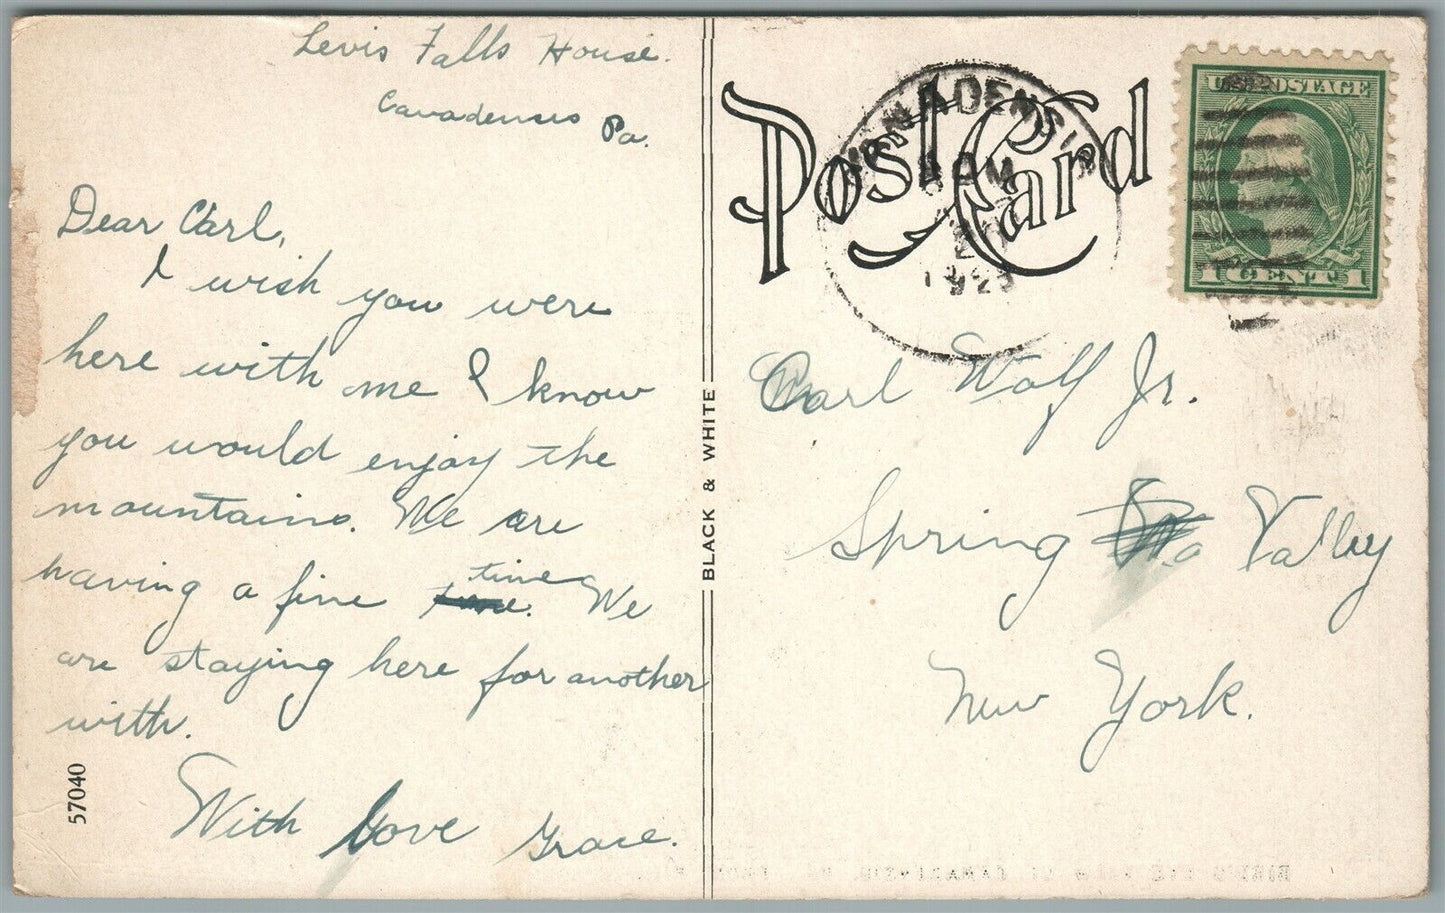 Levis Falls House.
Canadensis Pa.
Dear Carl,
I wish you were
here with me I know
you would enjoy the
mountains. We are
having a fine time We
are staying here for another
with.
With Love Grace.
57040
BLACK & WHITE
Post Card
CANADENSIS
1923
U.S. POSTAGE
1 CENT 1
Carl Wolf Jr.
Spring Valley
New York.